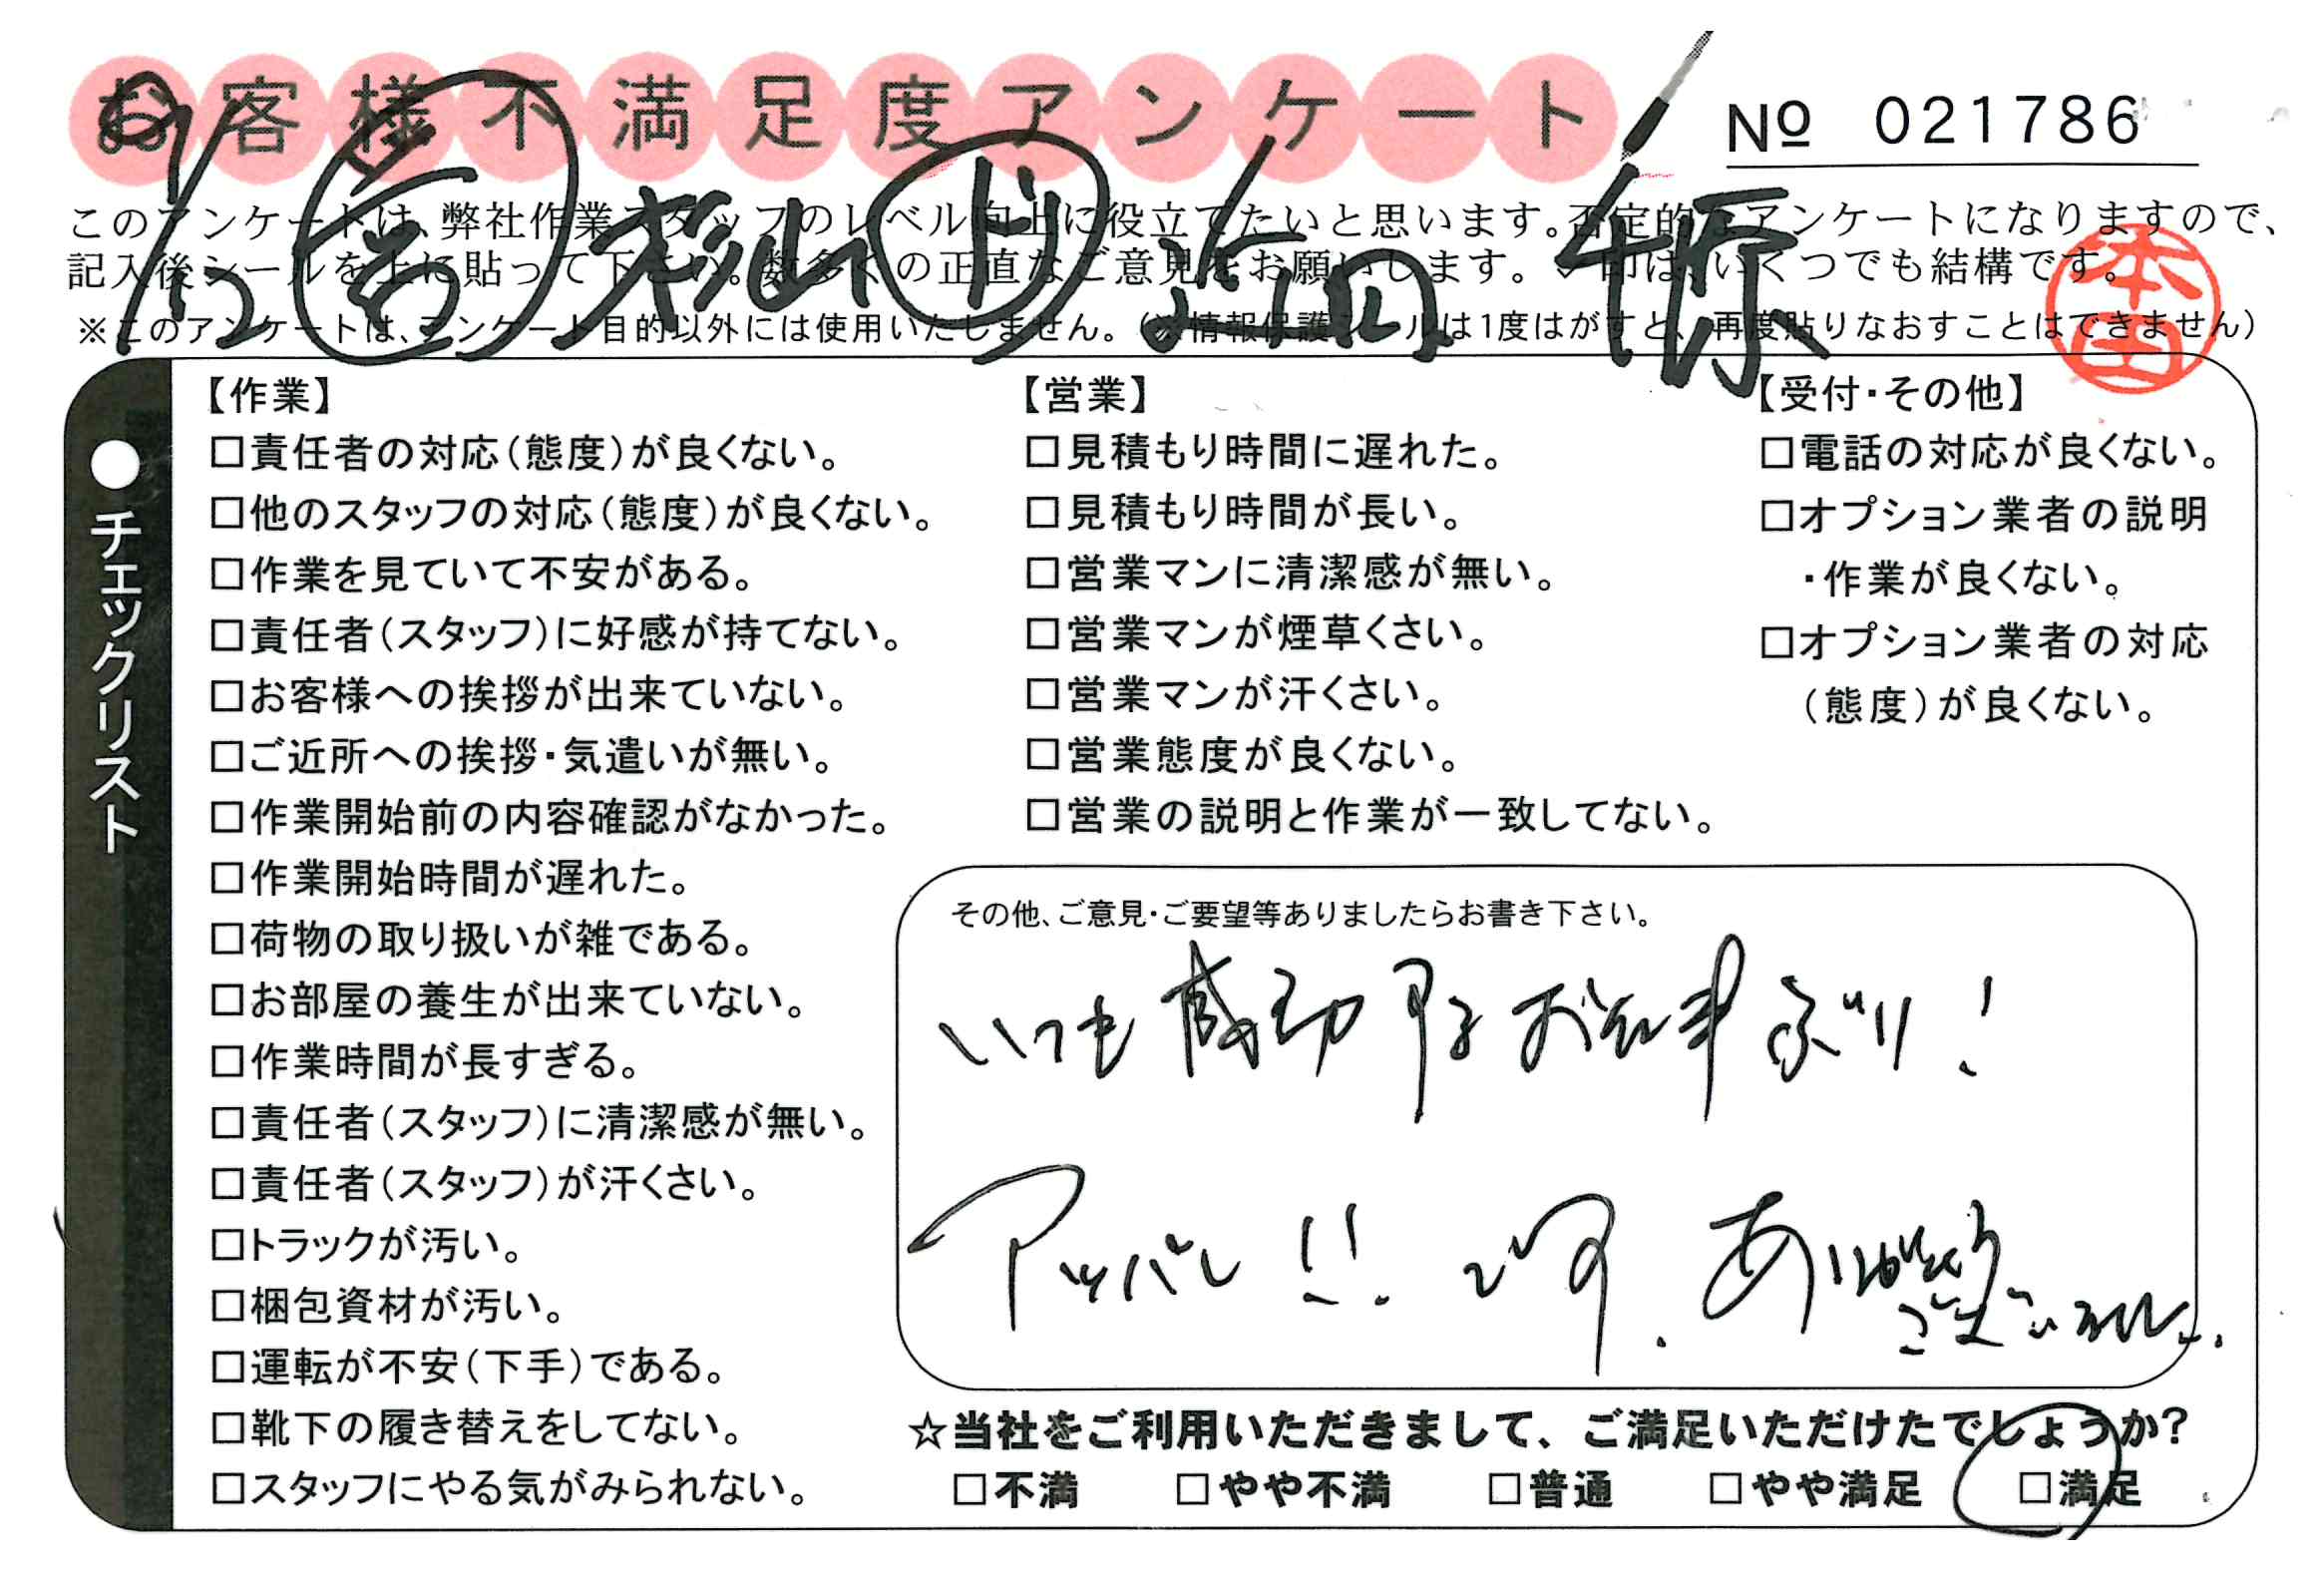 お客様不満足度アンケート
№ 021786
このアンケートは、弊社作業スタッフのレベル向上に役立てたいと思います。否定的なアンケートになりますので、
記入後シールを上に貼って下さい。数多くの正直なご意見をお願いします。✓印は、いくつでも結構です。
※このアンケートは、アンケート目的以外には使用いたしません。(※情報保護シールは1度はがすと、再度貼りなおすことはできません)
杉山
本田
●チェックリスト
【作業】
□責任者の対応(態度)が良くない。
□他のスタッフの対応(態度)が良くない。
□作業を見ていて不安がある。
□責任者(スタッフ)に好感が持てない。
□お客様への挨拶が出来ていない。
□ご近所への挨拶・気遣いが無い。
□作業開始前の内容確認がなかった。
□作業開始時間が遅れた。
□荷物の取り扱いが雑である。
□お部屋の養生が出来ていない。
□作業時間が長すぎる。
□責任者(スタッフ)に清潔感が無い。
□責任者(スタッフ)が汗くさい。
□トラックが汚い。
□梱包資材が汚い。
□運転が不安(下手)である。
□靴下の履き替えをしてない。
□スタッフにやる気がみられない。
【営業】
□見積もり時間に遅れた。
□見積もり時間が長い。
□営業マンに清潔感が無い。
□営業マンが煙草くさい。
□営業マンが汗くさい。
□営業態度が良くない。
□営業の説明と作業が一致してない。
【受付・その他】
□電話の対応が良くない。
□オプション業者の説明
・作業が良くない。
□オプション業者の対応
(態度)が良くない。
その他、ご意見・ご要望等ありましたらお書き下さい。
いつも感動するお仕事ぶり!
アッパレ!!です。ありがとう
ございました。
☆当社をご利用いただきまして、ご満足いただけたでしょうか?
□不満 □やや不満 □普通 □やや満足 □満足